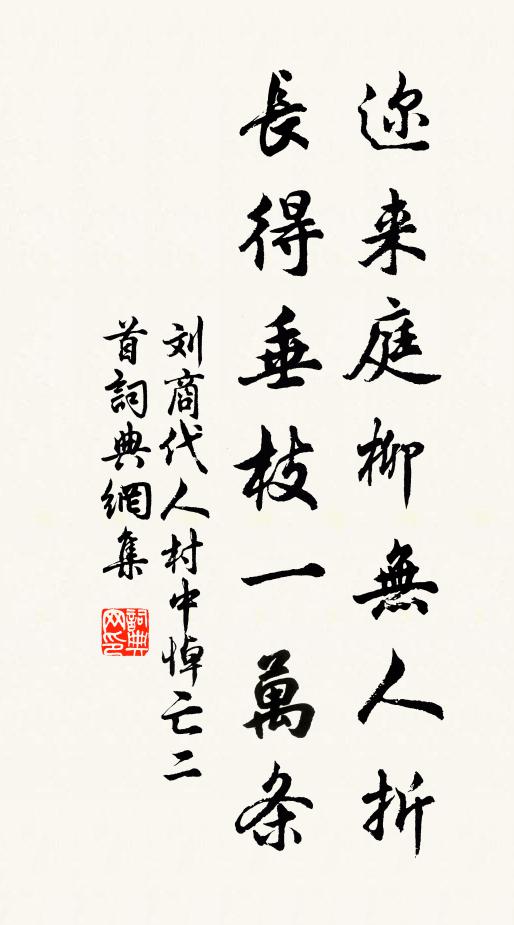 迩来庭柳無人折
長得垂枝一萬条
刘商代人村中悼亡二
首詞典網集
詞典
网印